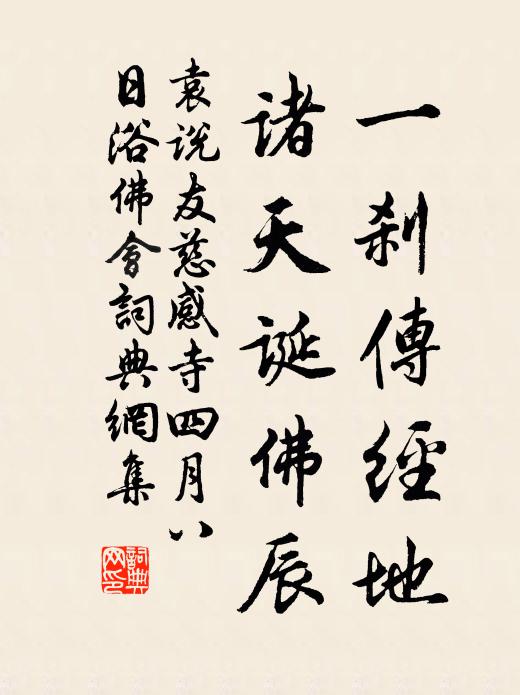 一刹傳經地
諸天誕佛辰
袁説友慈感寺四月八
日浴佛會詞典網集
詞典网印